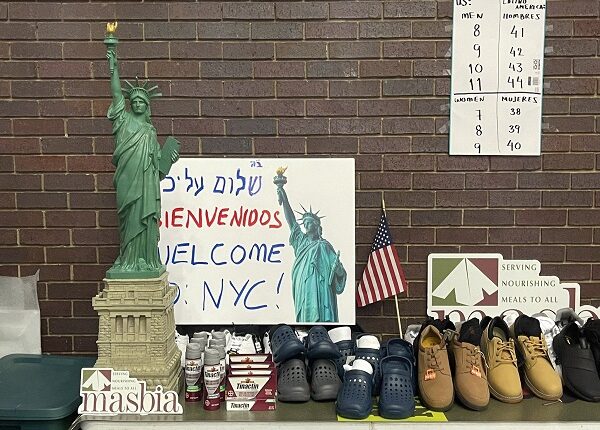 US:
MEN HOMBRES
8 41
9 42
10 43
11 44
WOMEN MUJERES
7 38
8 39
9 40
שלום עליכ
BIENVENIDOS
WELCOME
O: NYC!
SERVING
NOURISHING
MEALS TO ALL
SERVING
NOURISHING
MEALS TO ALL
masbia
Tinactin
Tinactin